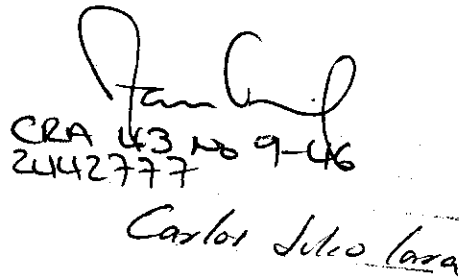 CRA 43 No 9-46
2442777
Carlos Julio Lara